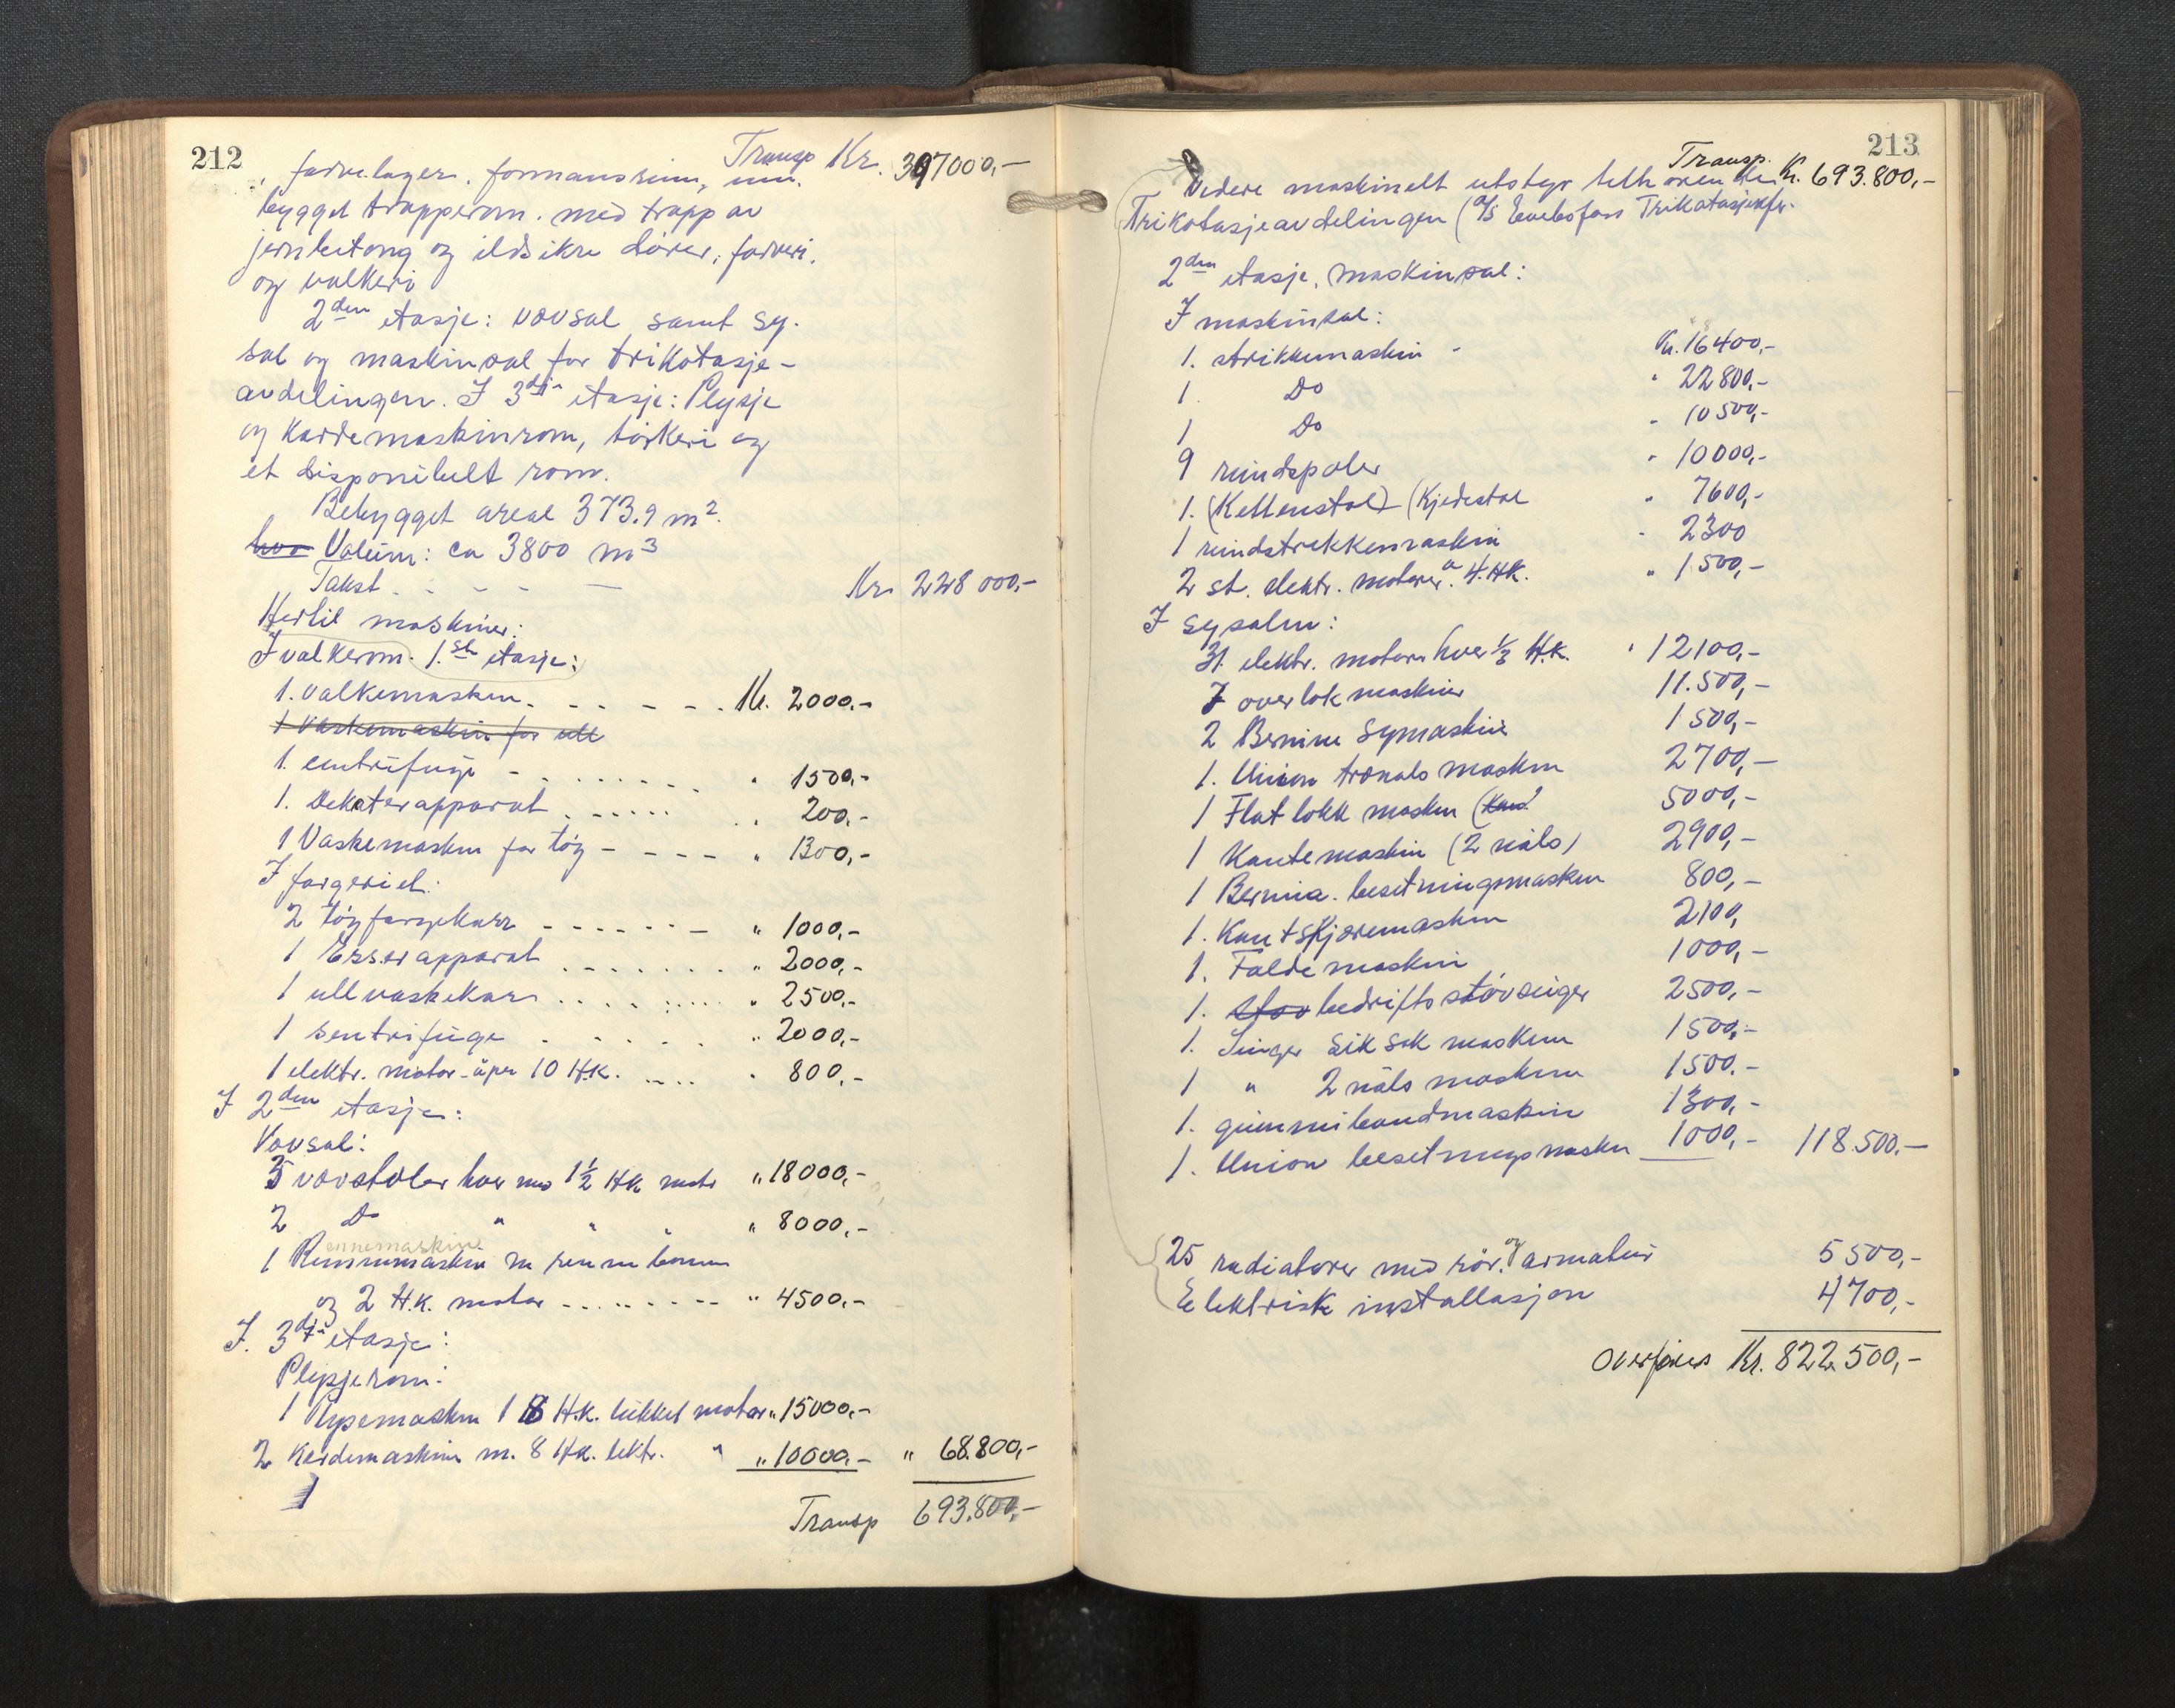 212
Transp Kr. 397000,-
farvelager, formannsrum, inn-
bygget trapperom. med trapp av
jernbetong og ildsikre dörer, farveri.
og valkeri
2den etasje: vevsal samt sy-
sal og maskinsal for trikotasje-
avdelingen. I 3dje etasje: Plysje
og Kardemaskinrom, törkeri og
et disponibelt rom.
Bebygget areal 373.9 m2.
hvo Volum: ca 3800 m3
Takst. - - - Kr. 228 000,-
Hertil maskiner:
I valkerom. 1.ste etasje:
1. Valkemaskin. - - - - - . Kr. 2000.-
1 Vaskemaskin for ull
1. centrifuge - . . . . . . " 1500,-
1. Dekaterapparat . - . . . . . " 200.-
1 Vaskemaskin for töy - - - - " 1300,-
I fargeriet:
2 töyfargekarr - - - - - - " 1000,-
1 Esserapparat . - . . . . . . " 2000,-
1 ullvaskekarr . . . . . . . . " 2500,-
1 sentrifuge . . . . . " 2000,-
1 elektr. motor - åpen 10 H.K. . . . . " 800,-
I 2den etasje:
Vevsal:
5 vevstoler hver med 1½ HK motor " 18000,-
2 Do " " " " 8000,-
ennemaskin
1 Rennemaskin m rennebom
og 2 H.K. motor - - - - - - - " 4500.-
I. 3dje etasje:
Plysjerom:
1 Rysemaskin 1 8 H.K. lukket motor " 15000,-
2 Kardemaskiner m. 8 HK. lektr. " " 10000,- " 68.800,-
1
Transp 693.800,-
213
Transp. Kr. 693.800,-
Videre maskinelt utstyr tilh
Trikotasjeavdelingen (A/S Evebofoss Trikotasjefbr.
2den etasje, maskinsal:
I maskinsal:
1. strikkemaskin - Kr. 16400,-
1. Do " 22800,-
1 Do " 10500,-
9 rundspoler " 10000,-
1. (Kettenstol) (Kjedestol " 7600,-
1 rundstrikkemaskin " 2300
2 st. elektr. motorer à 4. HK. " 1500,-
I sysalen:
31. elektr. motorer hver ⅓ H.K. " 12100,-
7 overlokmaskiner 11.500,-
2 Bernina Symaskiner 1500,-
1. Union trenåls maskin 2700,-
1 Flatlokk maskin (Kan 5000,-
1 Kantemaskin (2 nåls) 2900,-
1 Bernina. besetningsmaskin 800,-
1. Kantskjæremaskin 2100,
1. Faldemaskin 1000,-
1. Stov bedriftsstövsuger 2500,-
1. Singer sik sak maskin 1500,-
1 " 2 nåls maskin 1500.-
1. gummibandmaskin 1300,-
1. Union besetningsmaskin 1000,- 118.500.-
25 radiatorer med rör. og armatur 5500,-
Elektrisk installasjon 4700,-
Overföres Kr. 822.500,-